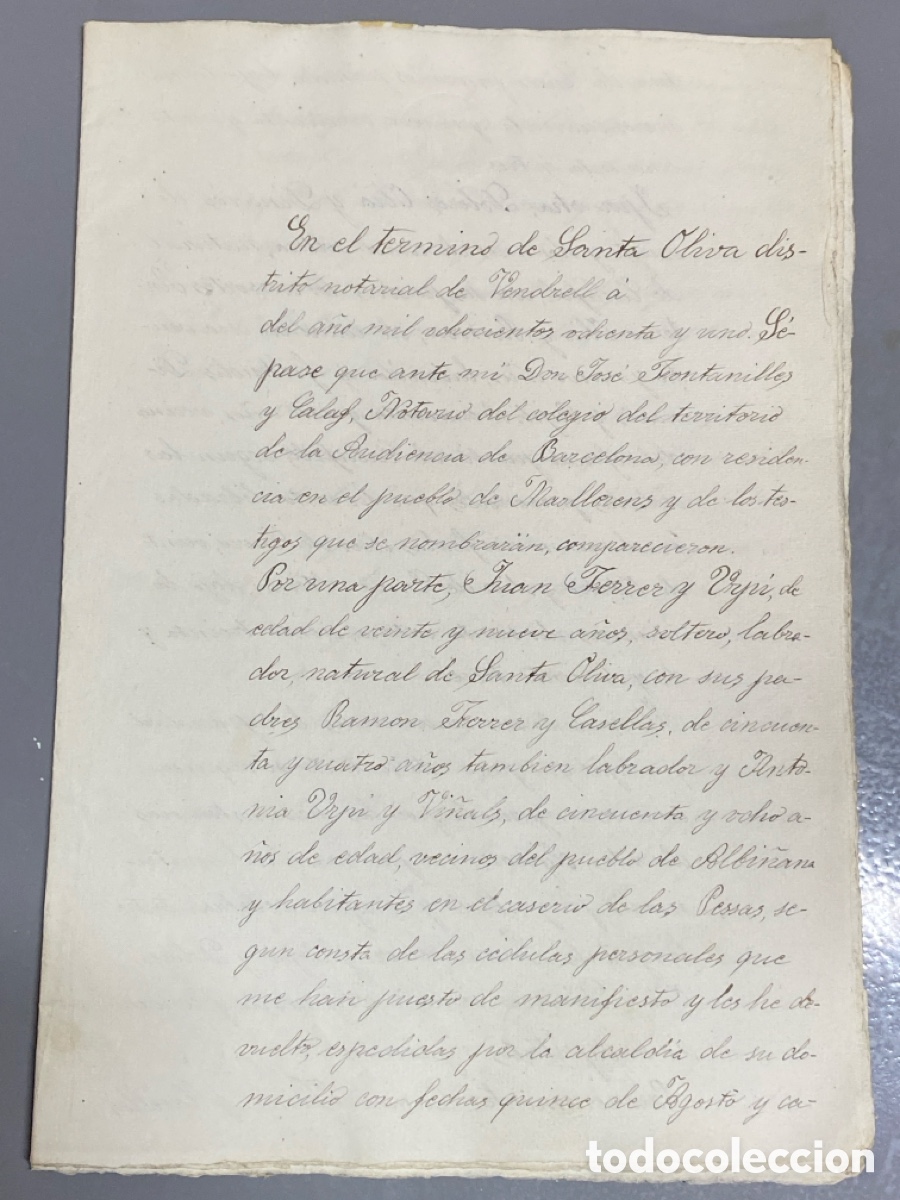 En el termino de Santa Oliva dis-
trito notarial de Vendrell á
del año mil ochocientos ochenta y uno. Sé-
pase que ante mi Don José Fontanilles
y Calaf, Notario del colegio del territorio
de la Audiencia de Barcelona, con residen-
cia en el pueblo de Masllorens y de los tes-
tigos que se nombrarán, comparecieron.
Por una parte, Juan Ferrer y Urpí, de
edad de veinte y nueve años, soltero, labra-
dor, natural de Santa Oliva, con sus pa-
dres Ramon Ferrer y Casellas, de cincuen-
ta y cuatro años tambien labrador y Anto-
nia Urpí y Viñals, de cincuenta y ocho a-
ños de edad, vecinos del pueblo de Albiñana
y habitantes en el caserio de las Pessas, se-
gun consta de las cédulas personales que
me han puesto de manifiesto y les he de-
vuelto, espedidas por la alcaldía de su do-
micilio con fechas quince de Agosto y ca-
todocoleccion